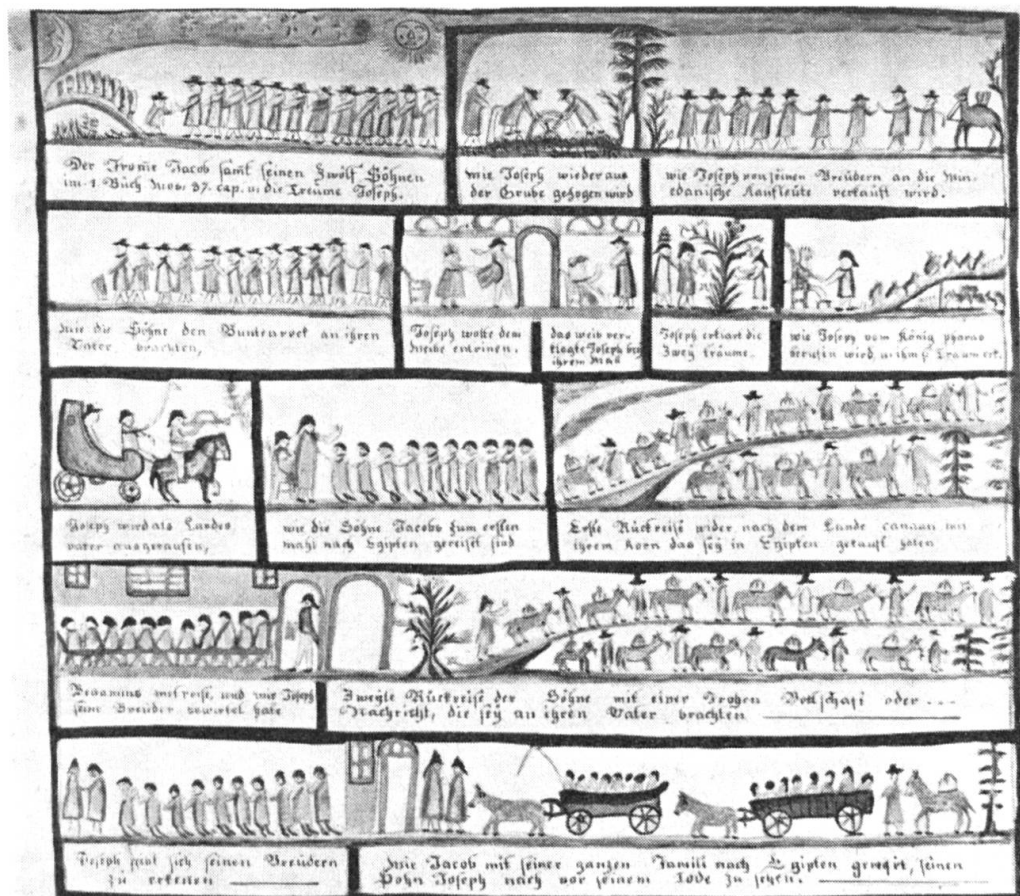 Der Frome Jacob samt seinen Zwölf Söhnen
im 1 Buch Mos: 37. cap. u: die Treume Joseph.
wie Joseph wieder aus
der Grube gezogen wird
wie Joseph von seinen Breüdern an die
Kaufleüte verkauft wird.
wie die Söhne den an ihren
Vater, brachten,
Joseph wolte dem
weibe entrinen.
das weib ver-
klagte Joseph bey
ihrem Mañ
Joseph erklärt die
Zwey träume.
wie Joseph vom König pharao
berufen wird,
Joseph wird als Landes,
vater ausgerusen,
wie die Söhne Jacobs zum ersten
mahl nach Egipten gereiset sind
Erste Rückreise wider nach dem Lande canaan mit
ihrem Korn das sey in Egipten gekauft haten
mitreise, und wie Joseph
seine Breüder hate
Zweyte Rückreise der Söhne mit einer Frohen Bottschaft oder - - -
Nachricht, die sey an ihren Vater brachten
Joseph gibt sich seinen Breüdern
zu erkenen
wie Jacob mit seiner ganzen Famili nach Egipten seinen
Sohn Joseph noch vor seinem Tode zu sehen.